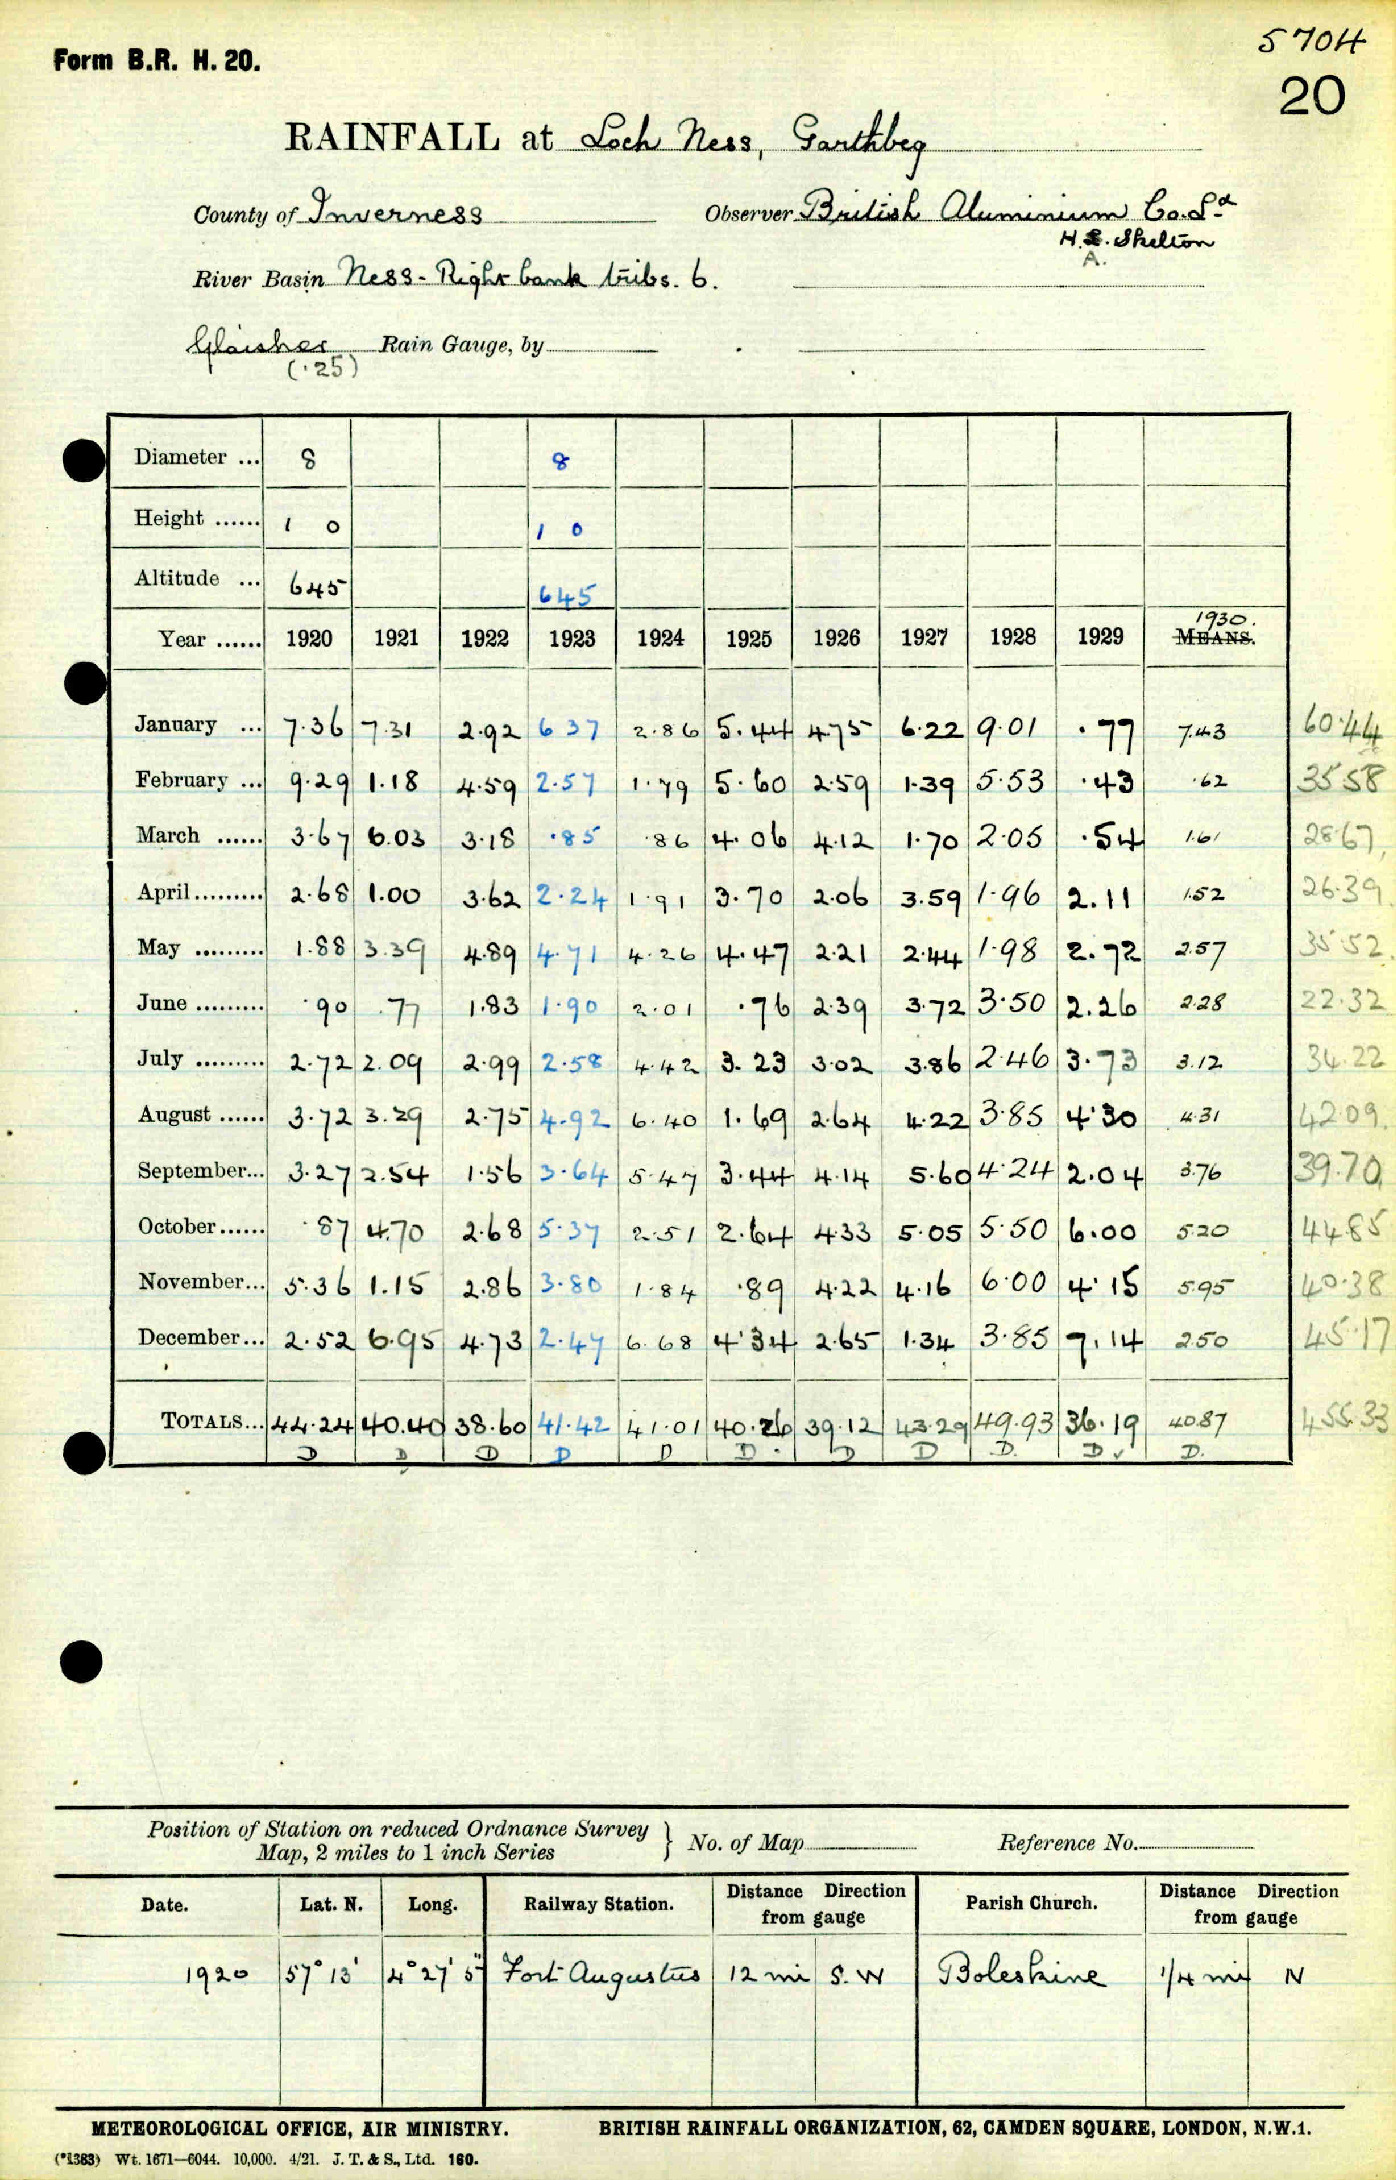 5704
Form B.R. H. 20.
20
RAINFALL at Loch Ness, Garthbeg
County of Inverness Observer British Aluminium Co. Ld
H.E. Skelton
A.
River Basin Ness - Right bank tribs. 6.
Glaisher Rain Gauge, by
(·25)
Diameter ... 8 8
Height ...... 1 0 1 0
Altitude ... 645 645
1930.
Year ...... 1920 1921 1922 1923 1924 1925 1926 1927 1928 1929 MEANS.
January ... 7.36 7.31 2.92 6 37 2.86 5.44 4.75 6.22 9.01 .77 7.43 60.44
February ... 9.29 1.18 4.59 2.57 1.79 5.60 2.59 1.39 5.53 .43 .62 35.58
March ...... 3.67 6.03 3.18 .85 .86 4.06 4.12 1.70 2.05 .54 1.61 28.67
April......... 2.68 1.00 3.62 2.24 1.91 3.70 2.06 3.59 1.96 2.11 1.52 26.39
May ......... 1.88 3.39 4.89 4.71 4.26 4.47 2.21 2.44 1.98 2.72 2.57 35.52
June ......... .90 .77 1.83 1.90 2.01 .76 2.39 3.72 3.50 2.26 2.28 22.32
July ......... 2.72 2.09 2.99 2.58 4.42 3.23 3.02 3.86 2.46 3.73 3.12 34.22
August ...... 3.72 3.29 2.75 4.92 6.40 1.69 2.64 4.22 3.85 4.30 4.31 42.09
September... 3.27 2.54 1.56 3.64 5.47 3.44 4.14 5.60 4.24 2.04 3.76 39.70
October...... .87 4.70 2.68 5.37 2.51 2.64 4.33 5.05 5.50 6.00 5.20 44.85
November... 5.36 1.15 2.86 3.80 1.84 .89 4.22 4.16 6.00 4.15 5.95 40.38
December... 2.52 6.95 4.73 2.47 6.68 4.34 2.65 1.34 3.85 7.14 2.50 45.17
TOTALS... 44.24 40.40 38.60 41.42 41.01 40.26 39.12 43.29 49.93 36.19 40.87 455.33
D D D D D D D D D. D ✓ D.
Position of Station on reduced Ordnance Survey
Map, 2 miles to 1 inch Series } No. of Map Reference No.
Date. Lat. N. Long. Railway Station. Distance Direction from gauge Parish Church. Distance Direction from gauge
1920 57° 13' 4° 27' 5" Fort Augustus 12 mi S. W Boleskine 1/4 mi N
METEOROLOGICAL OFFICE, AIR MINISTRY. BRITISH RAINFALL ORGANIZATION, 62, CAMDEN SQUARE, LONDON, N.W.1.
(*1383) Wt. 1671—6044. 10,000. 4/21. J. T. & S., Ltd. 160.